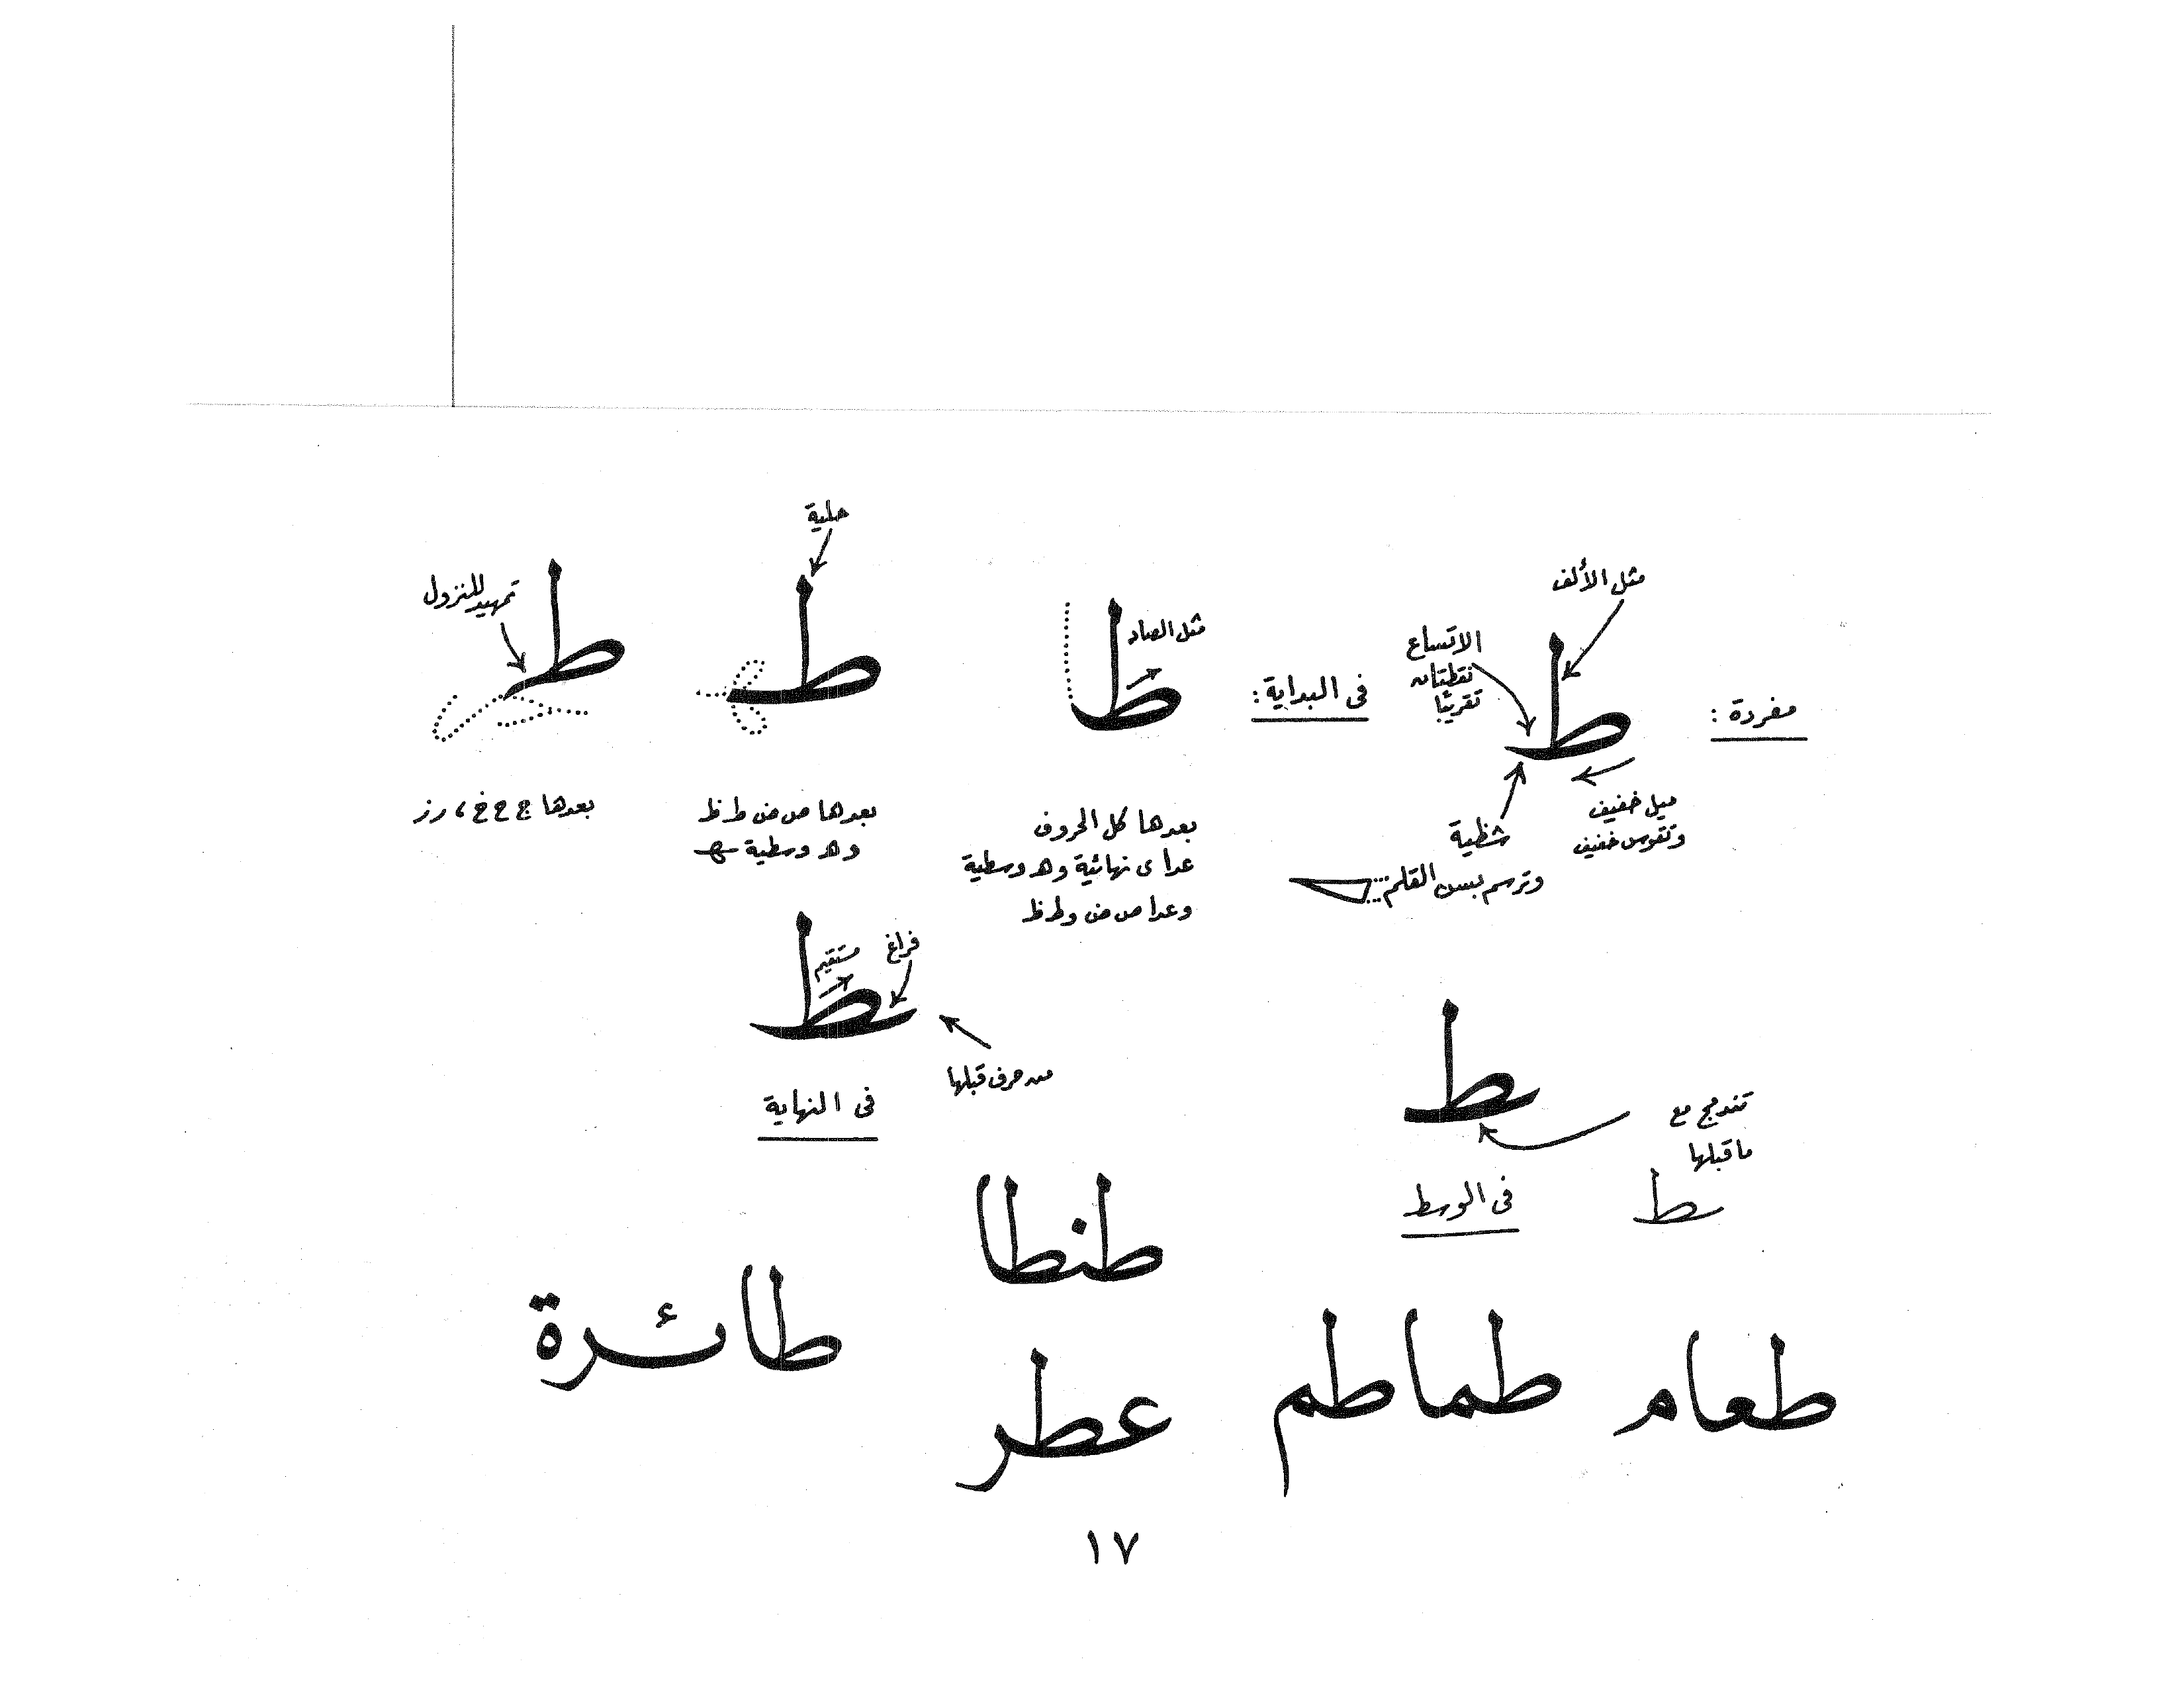 مفردة :
ط
مثل الألف
الاتساع
نقطتان
تقريبًا
ميل خفيف
وتقوس خفيف
شظية
وترسم بسن القلم
فى البداية :
ط
مثل الصاد
بعدها كل الحروف
عدا ى نهائية و هـ وسطية
وعدا ص ض و ط ظ
حلية
ط
بعدها ص ض ط ظ
و هـ وسطية ـهـ
تمهيد للنزول
ط
بعدها ج ح خ ، ر ز
ـط
تندمج مع
ما قبلها
ـط
فى الوسط
ـط
فراغ
مستقيم
من حرف قبلها
فى النهاية
طنطا
طعام
طماطم
عطر
طائرة
١٧